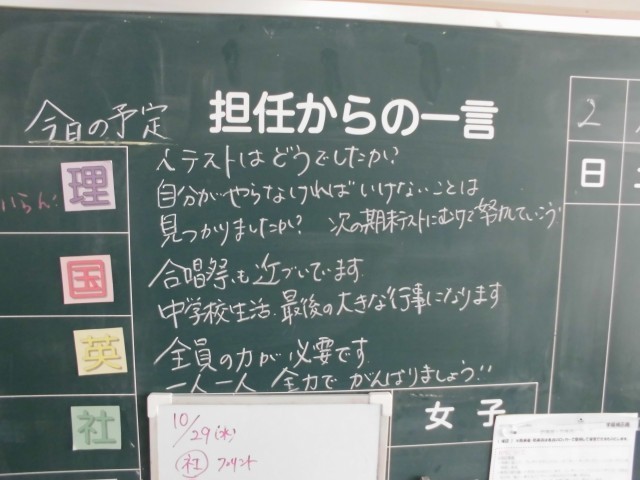 今日の予定
担任からの一言
テストはどうでしたか?
自分がやらなければいけないことは
見つかりましたか? 次の期末テストにむけて努力していこう
合唱祭も近づいています
中学校生活最後の大きな行事になります
全員の力が必要です
一人一人全力でがんばりましょう!!
理
国
英
社
2
日
女子
10/29(水)
社 プリント